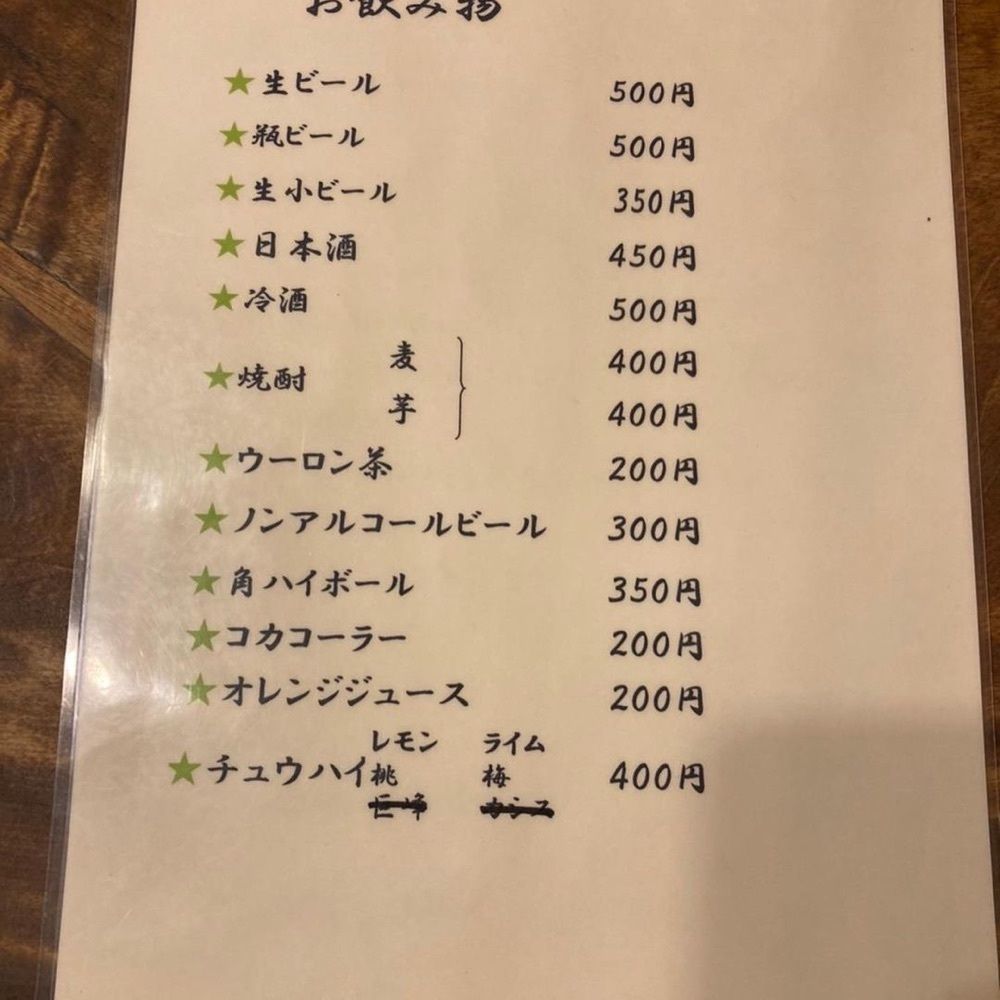 お飲み物
★生ビール 500円
★瓶ビール 500円
★生小ビール 350円
★日本酒 450円
★冷酒 500円
麦 400円
★焼酎
芋 400円
★ウーロン茶 200円
★ノンアルコールビール 300円
★角ハイボール 350円
★コカコーラー 200円
★オレンジジュース 200円
レモン ライム
★チュウハイ 桃 梅 400円
巨峰 カシス